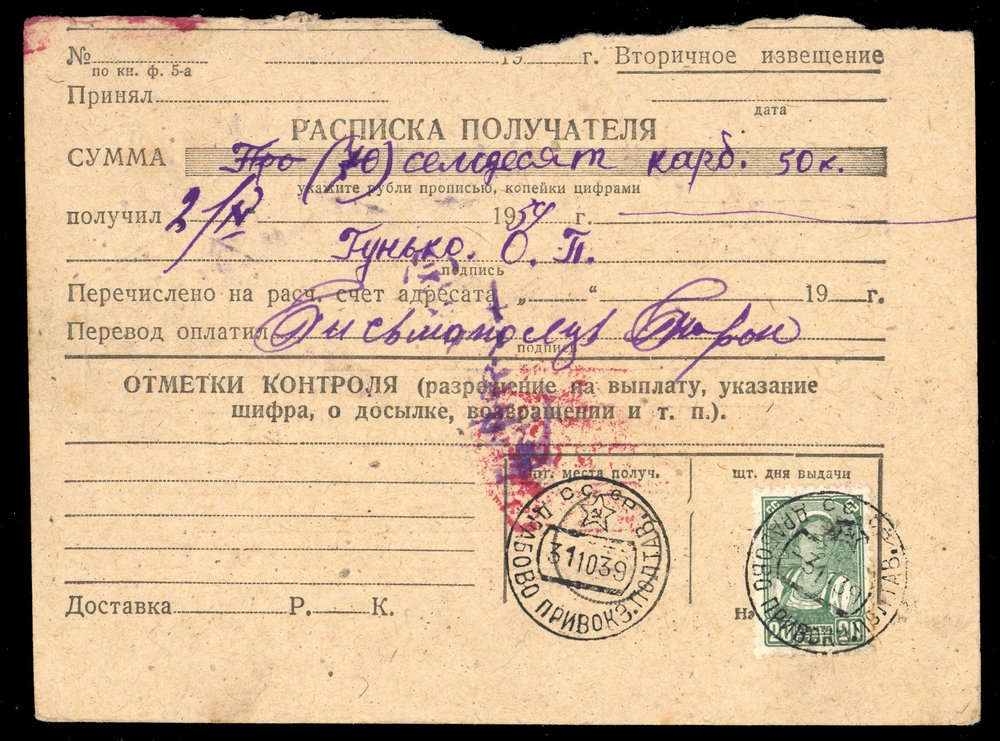 № 19 г. Вторичное извещение
по кн. ф. 5-а
Принял
дата
РАСПИСКА ПОЛУЧАТЕЛЯ
СУММА Про (70) семдесят карб. 50 к.
укажите рубли прописью, копейки цифрами
получил 2/IV 1954 г.
Гунько. О. П.
подпись
Перечислено на расч. счет адресата „ “ 19 г.
Перевод оплатил
подпись
ОТМЕТКИ КОНТРОЛЯ (разрешение на выплату, указание
шифра, о досылке, возвращении и т. п.).
шт. места получ. шт. дня выдачи
СССР
ДРАБОВО ПРИВОКЗ. ПОЛТАВ.
311039
Доставка Р. К.